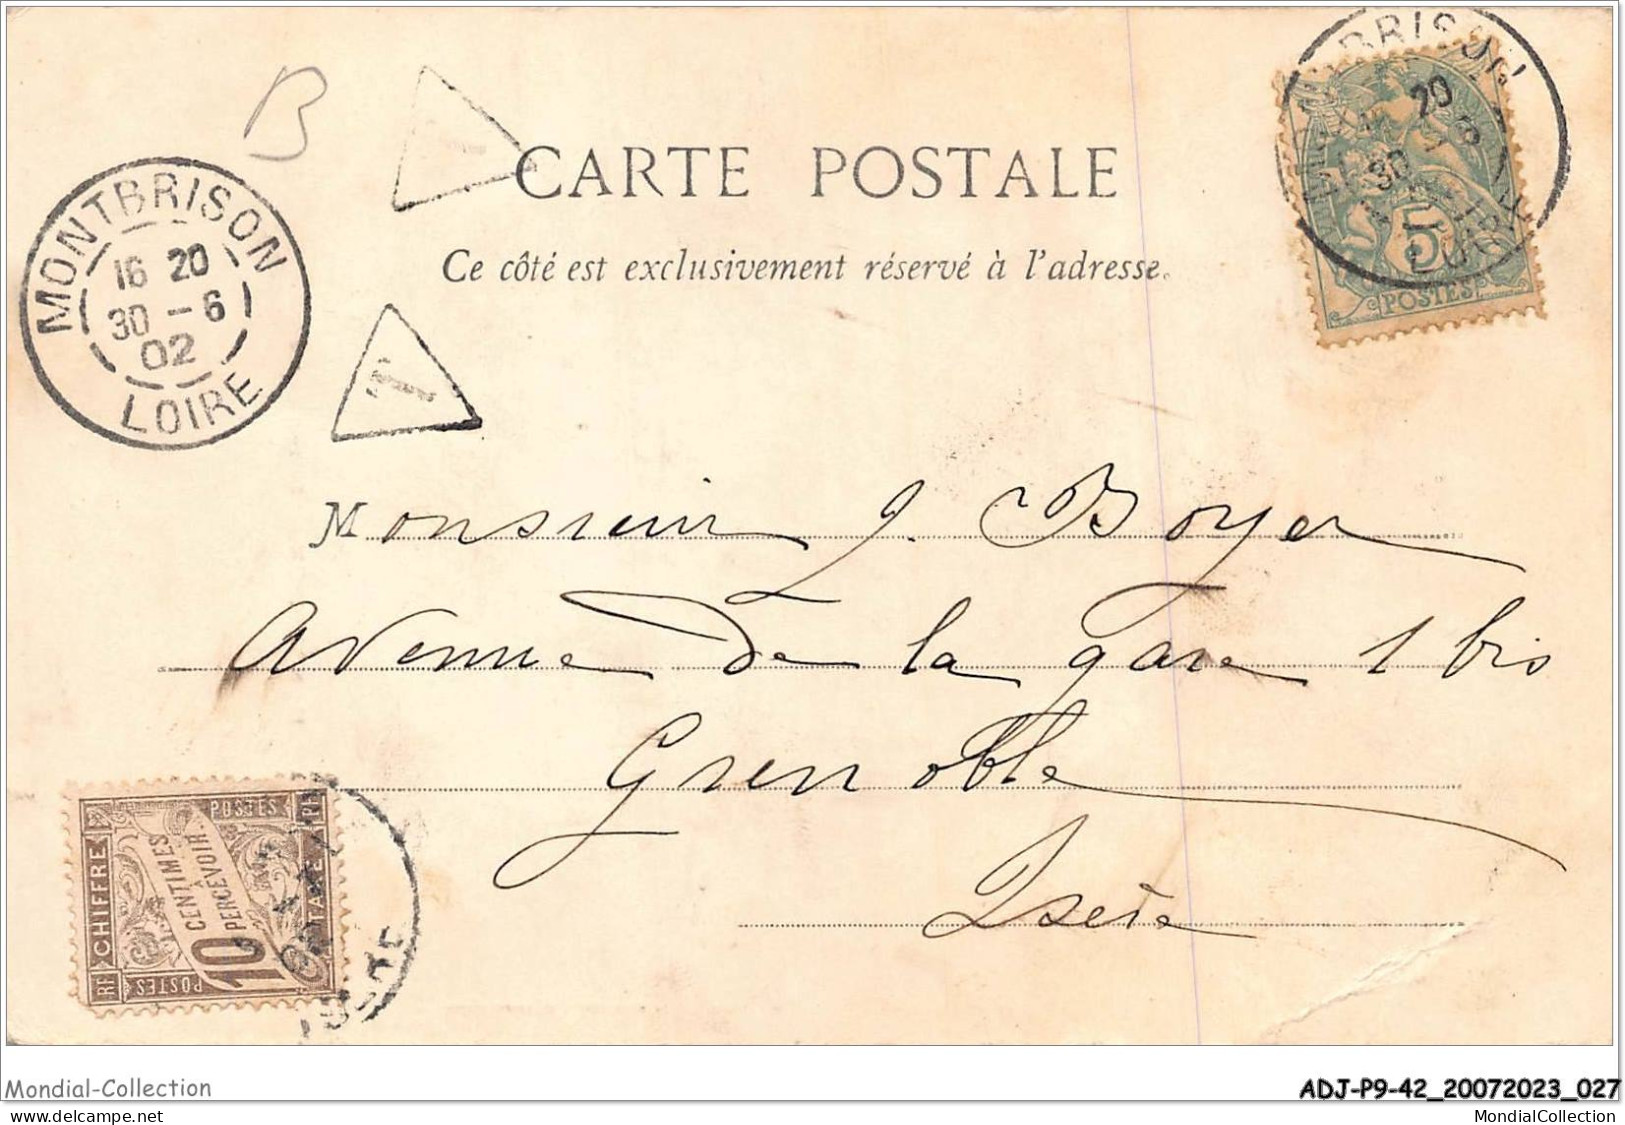 B
BRISON
20
30
5
POSTES
LOIRE
MONTBRISON
16 20
30 - 6
02
LOIRE
T
CARTE POSTALE
Ce côté est exclusivement réservé à l'adresse.
T
Monsieur J. Boyer
Avenue de la gare 1 bis
Grenoble
Isère
POSTES
RF
CHIFFRE
10
CENTIMES
À
PERCEVOIR
TAXE
POSTES
RF
Mondial-Collection
ADJ-P9-42_20072023_027
www.delcampe.net
MondialCollection